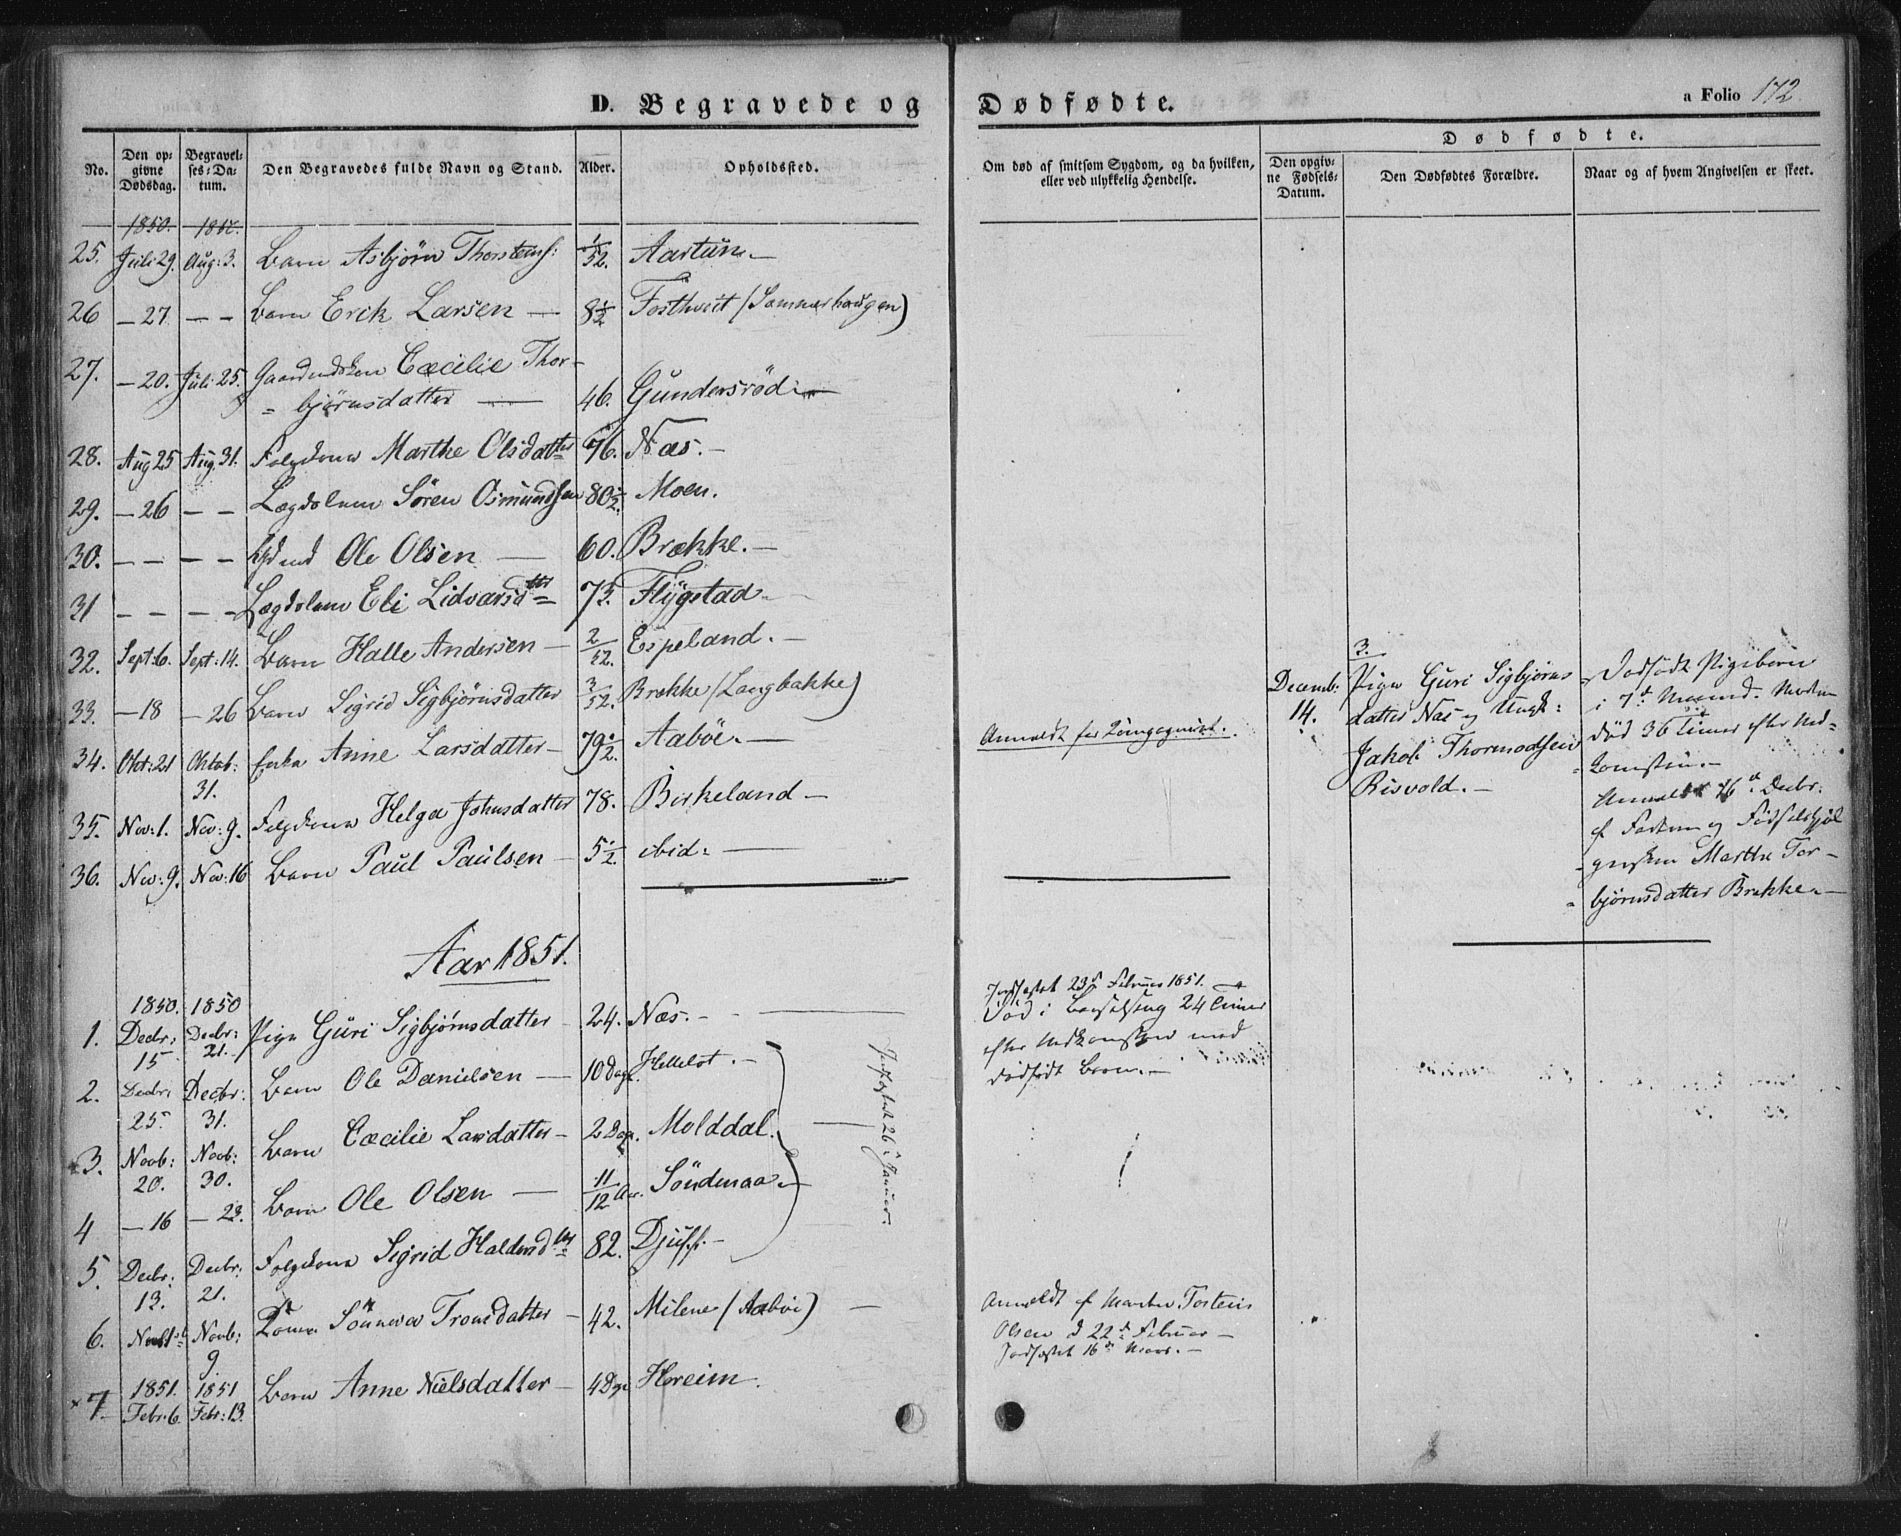 D. Begravede og Dødfødte.
a Folio 172.
No.
Den opgivne Dødsdag.
Begravelses-Datum.
Den Begravedes fulde Navn og Stand.
Alder.
Opholdssted.
Om død af smitsom Sygdom, og da hvilken, eller ved ulykkelig Hendelse.
Dødfødte.
Den opgivne Fødsels-Datum.
Den Dødfødtes Forældre.
Naar og af hvem Angivelsen er skeet.
1850. 1850.
25. Juli 29. Aug: 3. Barn Asbjørn Thorstens: 1/52. Aartun.—
26 — 27. — — Barn Erik Larsen — 8 1/2 Fosthveit (Sommerhaugen)
27. — 20. Juli 25. Cæcilie Thor-
bjørnsdatter — 46. Gundersröd.—
28. Aug 25 Aug. 31. Folgekona Marthe Olsdatter 76. Næs.—
29. — 26 — — Lægdslem Sören Osmundsen 80 1/2. Moen.
30. — — — — Ole Olsen — 60. Brække.—
31 — — — — Lægdslem Eli Lidvarsdtter 75. Flÿgstad—
32. Sept: 6. Sept: 14. Barn Halle Andersen — 2/52. Espeland.—
33. — 18 — 26 Barn Sigrid Sigbjørnsdatter 3/52. Brekke (Langbakke)
34. Oktr: 21 Oktob: 31. Enke Anne Larsdatter — 79 1/2. Aabøe.—
35. Nov: 1. Nov: 9. Folgekona Helga Johnsdatter 78. Birkeland —
36. Nov: 9. Nov: 16 Barn Paul Paulsen — 5 1/2 ibid: —
Decemb: 14.
3.
Pige Guri Sigbjørns
datter Næs og Ungk:
Jakob Thormodsen
Risvold.—
Dødfødt Pigebarn
i 7de Maaned. Moderen
død 36 Timer efter Ned-
komsten.—
Anmeldt 26de Decbr:
af Faderen og Fødselshjæl
persken Marthe Tor-
bjørnsdatter Brekke.—
Aar 1851.
1. 1850. Decbr: 15 1850 Decbr: 21. Pige Guri Sigbjørnsdatter — 24. Næs.—
Jordfæstet 23de Februar 1851.
Død i Barselseng 24 Timer
efter Nedkomsten med
dødfødt Barn.—
2. Decbr: 25 Decbr: 31. Barn Ole Danielsen — 10 Dage. Hellelot.—
3. Novb: 20. Novb: 30. Barn Cæcilie Larsdatter — 2 Dage. Molddal.
4 — 16 — 23. Barn Ole Olsen — 11/12 Aar. Söndenaa.—
5. Decbr: 13. Decbr: 21. Folgekona Sigrid Haldorsdtter 82. Djuff.—
Jordfæstet 26 Januar.
6. Novb: 9 Kona Sönneva Tronsdatter — 42. Milene (Aabøe) —
Anmeldt af Manden Torsten
Olsen d 22de Februar —
Jordfæstet 16de Marts.—
× 7. 1851. Febr: 6. 1851 Febr: 13. Barn Anne Nielsdatter — 4 Dge Horeim.